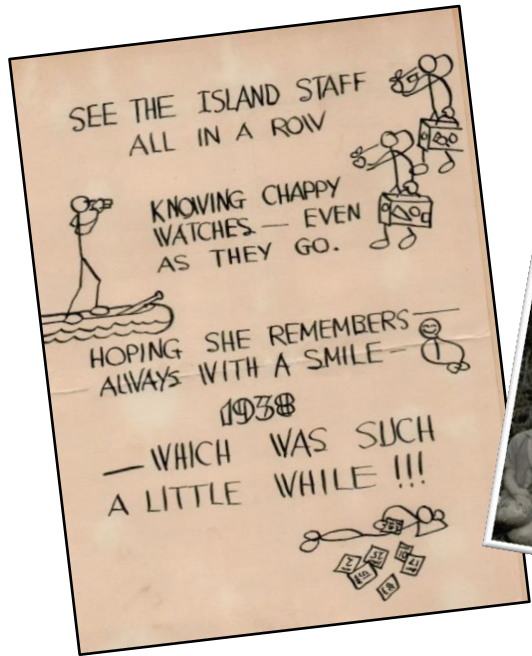 SEE THE ISLAND STAFF
ALL IN A ROW
KNOWING CHAPPY
WATCHES — EVEN
AS THEY GO.
HOPING SHE REMEMBERS —
ALWAYS WITH A SMILE —
1938
— WHICH WAS SUCH
A LITTLE WHILE !!!